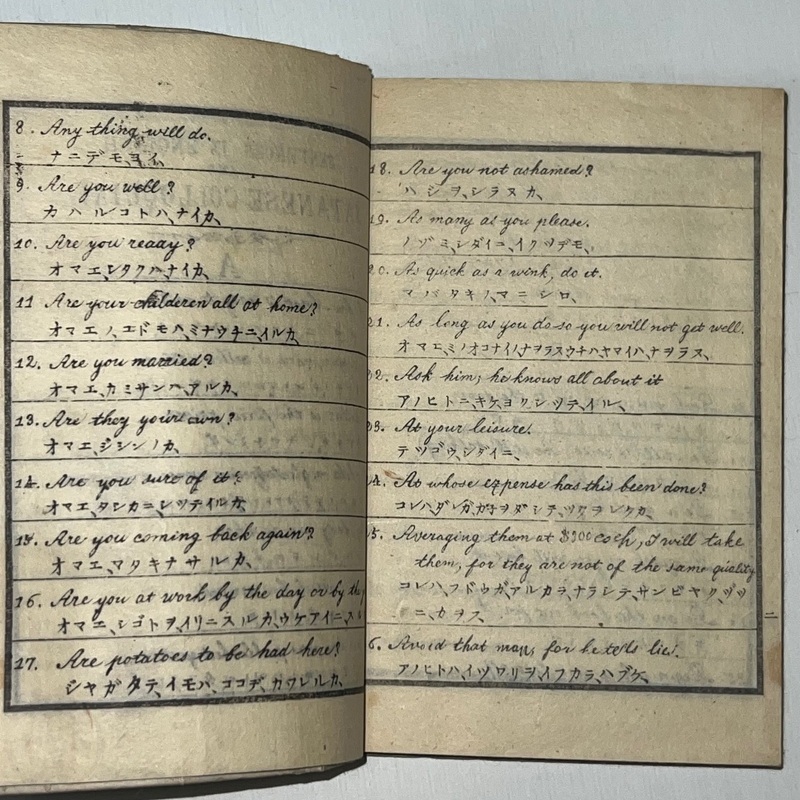 8. Any thing will do.
ナニデモヨイ
9. Are you well?
カハルコトハ、ナイカ、
10. Are you ready?
オマエ、シタクハナイカ、
11 Are your childeren all at home?
オマエノ、エドモハ、ミナウチニ、イルカ
12. Are you married?
オマエ、カミサンハ、アルカ、
13. Are they your own?
オマエ、ジシンノカ、
14. Are you sure of it?
オマエ、タシカニシツテイルカ
15. Are you coming back again?
オマエ、マタキナサルカ、
16. Are you at work by the day or by the
オマエ、シゴトヲイリニスルカ、ウケアイニ、ス
17. Are potatoes to be had here?
シヤガタテ、イモハ、ココデ、カワレルカ、
18. Are you not ashamed?
ハジヲ、シラヌカ、
19. As many as you please.
ノゾミシダイニ、イクツデモ、
20. As quick as a wink, do it.
マバタキノ、マニシロ、
21. As long as you do so you will not get well.
オマエ、ミノオコナイノ、ナヲラヌウチハ、ヤマイハ、ナヲラヌ、
22. Ask him; he knows all about it
アノヒトニ、キケ、ヨクシツテイル、
23. At your leisure.
テツゴウ、シダイニ、
24. At whose expense has this been done?
コレハ、ダレガ、カ子ヲダシテ、ツクヲレタカ、
25. Averaging them at $300 each, I will take
them, for they are not of the same quality
コレハ、フドウガアルカラ、ナラシテ、サンビヤク、ヅツ
ニ、カヲフ、
26. Avoid that man, for he tells lies.
アノヒトハ、イツワリヲ、イフカラ、ハブケ、
二